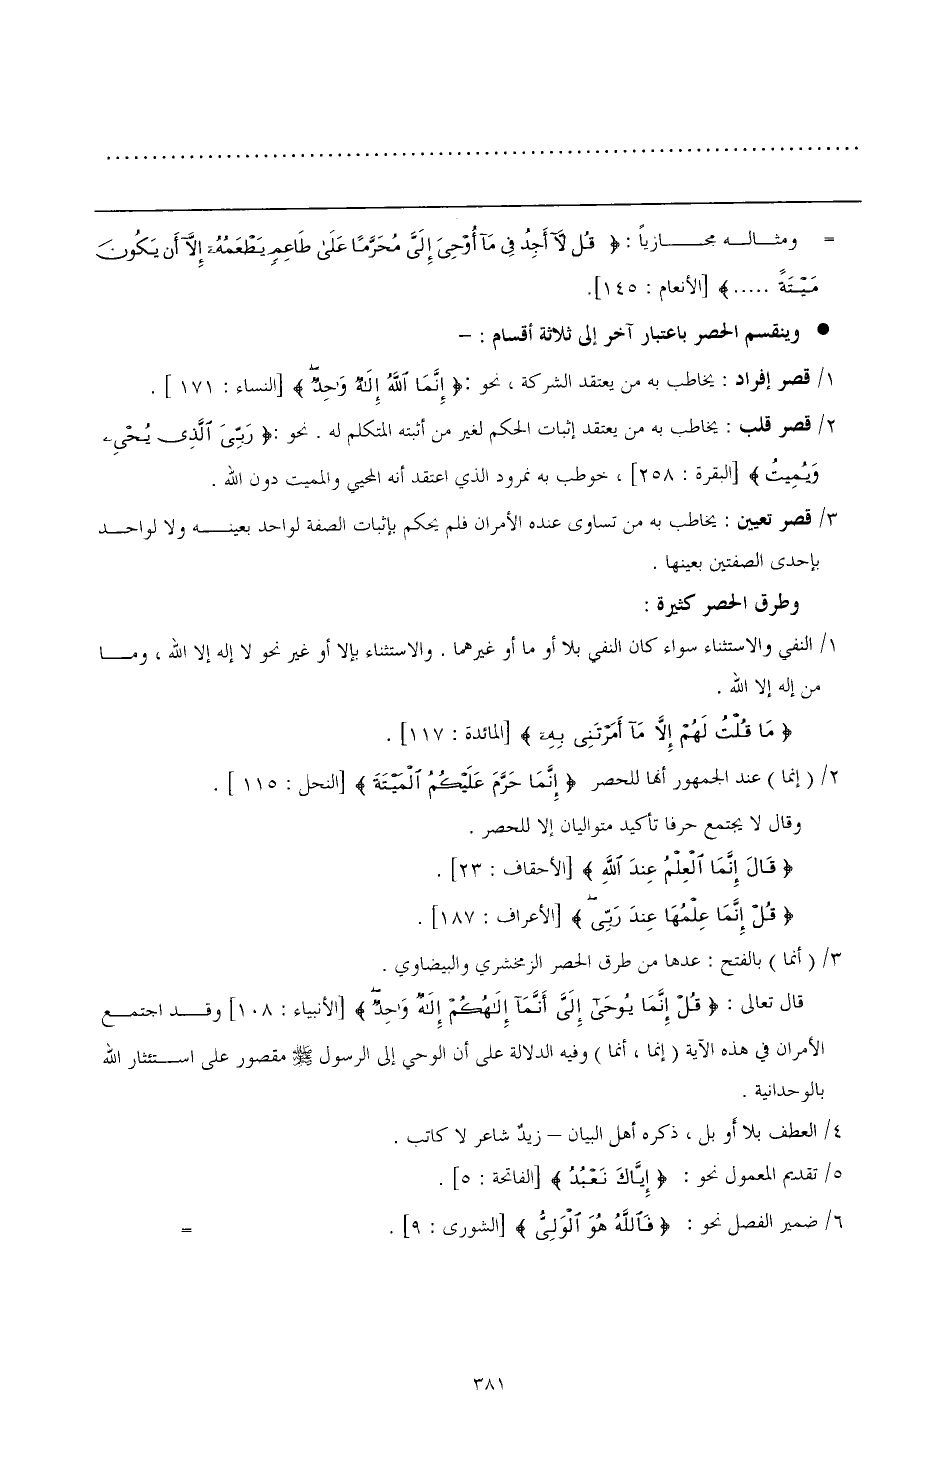 = ومثاله مجازياً : ﴿ قُل لَّآ أَجِدُ فِى مَآ أُوْحِىَ إِلَىَّ مُحَرَّمًا عَلَىٰ طَاعِمٍ يَطْعَمُهُۥٓ إِلَّآ أَن يَكُونَ
مَيْتَةً ..... ﴾ [الأنعام : ١٤٥].
● وينقسم الحصر باعتبار آخر إلى ثلاثة أقسام : –
١/ قصر إفراد : يخاطب به من يعتقد الشركة ، نحو :﴿ إِنَّمَا ٱللَّهُ إِلَٰهٌ وَٰحِدٌۖ ﴾ [النساء : ١٧١ ] .
٢/ قصر قلب : يخاطب به من يعتقد إثبات الحكم لغير من أثبته المتكلم له . نحو :﴿ رَبِّىَ ٱلَّذِى يُحْىِۦ
وَيُمِيتُ ﴾ [البقرة : ٢٥٨] ، خوطب به نمرود الذي اعتقد أنه المحيي والمميت دون الله .
٣/ قصر تعيين : يخاطب به من تساوى عنده الأمران فلم يحكم بإثبات الصفة لواحد بعينه ولا لواحد
بإحدى الصفتين بعينها .
وطرق الحصر كثيرة :
١/ النفي والاستثناء سواء كان النفي بلا أو ما أو غيرهما . والاستثناء بإلا أو غير نحو لا إله إلا الله ، وما
من إله إلا الله .
﴿ مَا قُلْتُ لَهُمْ إِلَّا مَآ أَمَرْتَنِى بِهِۦ ﴾ [المائدة : ١١٧] .
٢/ ( إنما ) عند الجمهور أنها للحصر ﴿ إِنَّمَا حَرَّمَ عَلَيْكُمُ ٱلْمَيْتَةَ ﴾ [النحل : ١١٥ ] .
وقال لا يجتمع حرفا تأكيد متواليان إلا للحصر .
﴿ قَالَ إِنَّمَا ٱلْعِلْمُ عِندَ ٱللَّهِ ﴾ [الأحقاف : ٢٣] .
﴿ قُلْ إِنَّمَا عِلْمُهَا عِندَ رَبِّىۖ ﴾ [الأعراف : ١٨٧] .
٣/ ( أنما ) بالفتح : عدها من طرق الحصر الزمخشري والبيضاوي .
قال تعالى : ﴿ قُلْ إِنَّمَا يُوحَىٰٓ إِلَىَّ أَنَّمَآ إِلَٰهُكُمْ إِلَٰهٌ وَٰحِدٌۖ ﴾ [الأنبياء : ١٠٨] وقد اجتمع
الأمران في هذه الآية ( إنما ، أنما ) وفيه الدلالة على أن الوحي إلى الرسول ﷺ مقصور على استئثار الله
بالوحدانية .
٤/ العطف بلا أو بل ، ذكره أهل البيان – زيدٌ شاعر لا كاتب .
٥/ تقديم المعمول نحو : ﴿ إِيَّاكَ نَعْبُدُ ﴾ [الفاتحة : ٥] .
٦/ ضمير الفصل نحو : ﴿ فَٱللَّهُ هُوَ ٱلْوَلِىُّ ﴾ [الشورى : ٩] . =
٣٨١